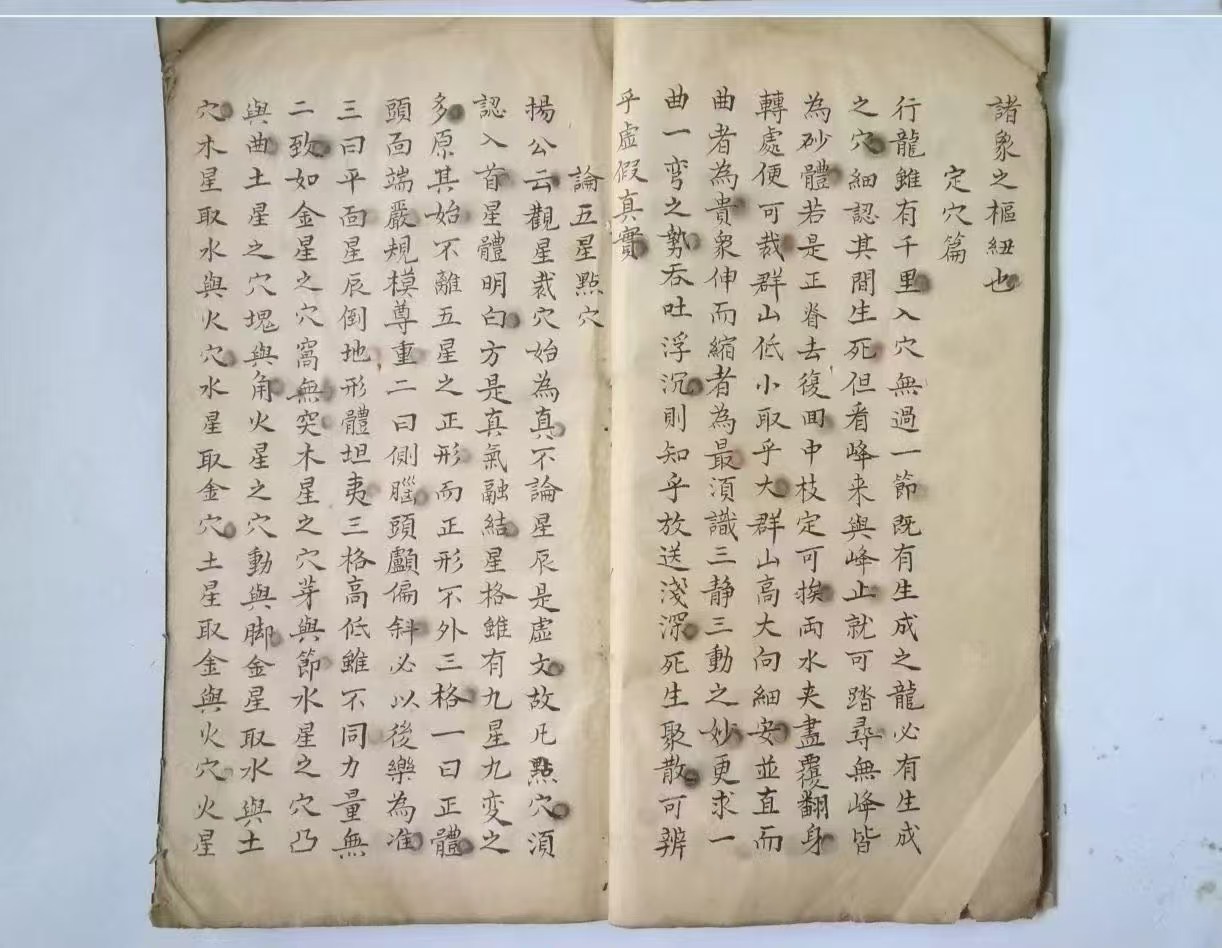 諸象之樞紐也
定穴篇
行龍雖有千里入穴無過一節既有生成之龍必有生成
之穴細認其間生死但看峰来與峰止就可踏尋無峰皆
為砂體若是正脊去復囬中枝定可挨両水夹盡覆翻身
轉處便可裁群山低小取乎大群山高大向細安並直而
曲者為貴衆伸而縮者為最湏識三静三動之妙更求一
曲一弯之勢吞吐浮沉則知乎放送淺深死生聚散可辨
乎虚假真實
論五星點穴
揚公云觀星裁穴始為真不論星辰是虚文故凡點穴湏
認入首星體明白方是真氣融結星格雖有九星九变之
多原其始不離五星之正形而正形不外三格一曰正體
頭面端嚴規模尊重二曰側腦頭顱偏斜必以後樂為准
三曰平面星辰倒地形體坦夷三格高低雖不同力量無
二致如金星之穴窩無突木星之穴芽與節水星之穴凸
與曲土星之穴塊與角火星之穴動與脚金星取水與土
穴木星取水與火穴水星取金穴土星取金與火穴火星